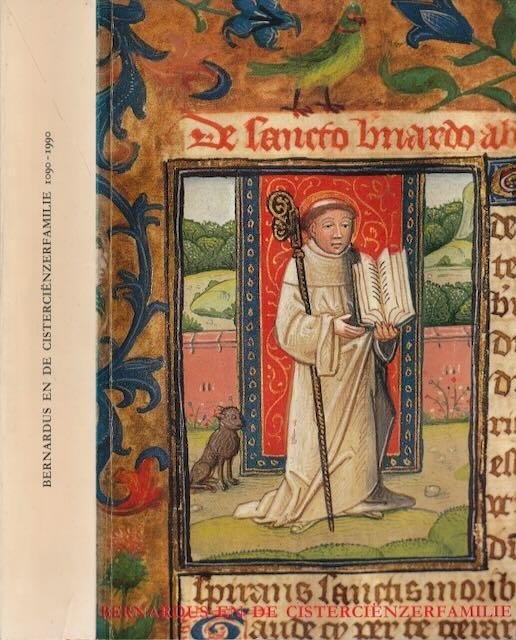 BERNARDUS EN DE CISTERCIËNZERFAMILIE 1090-1990
De sancto bnardo ab
de
te
di
di
ri
el
spirans sanctis morib
BERNARDUS EN DE CISTERCIËNZERFAMILIE